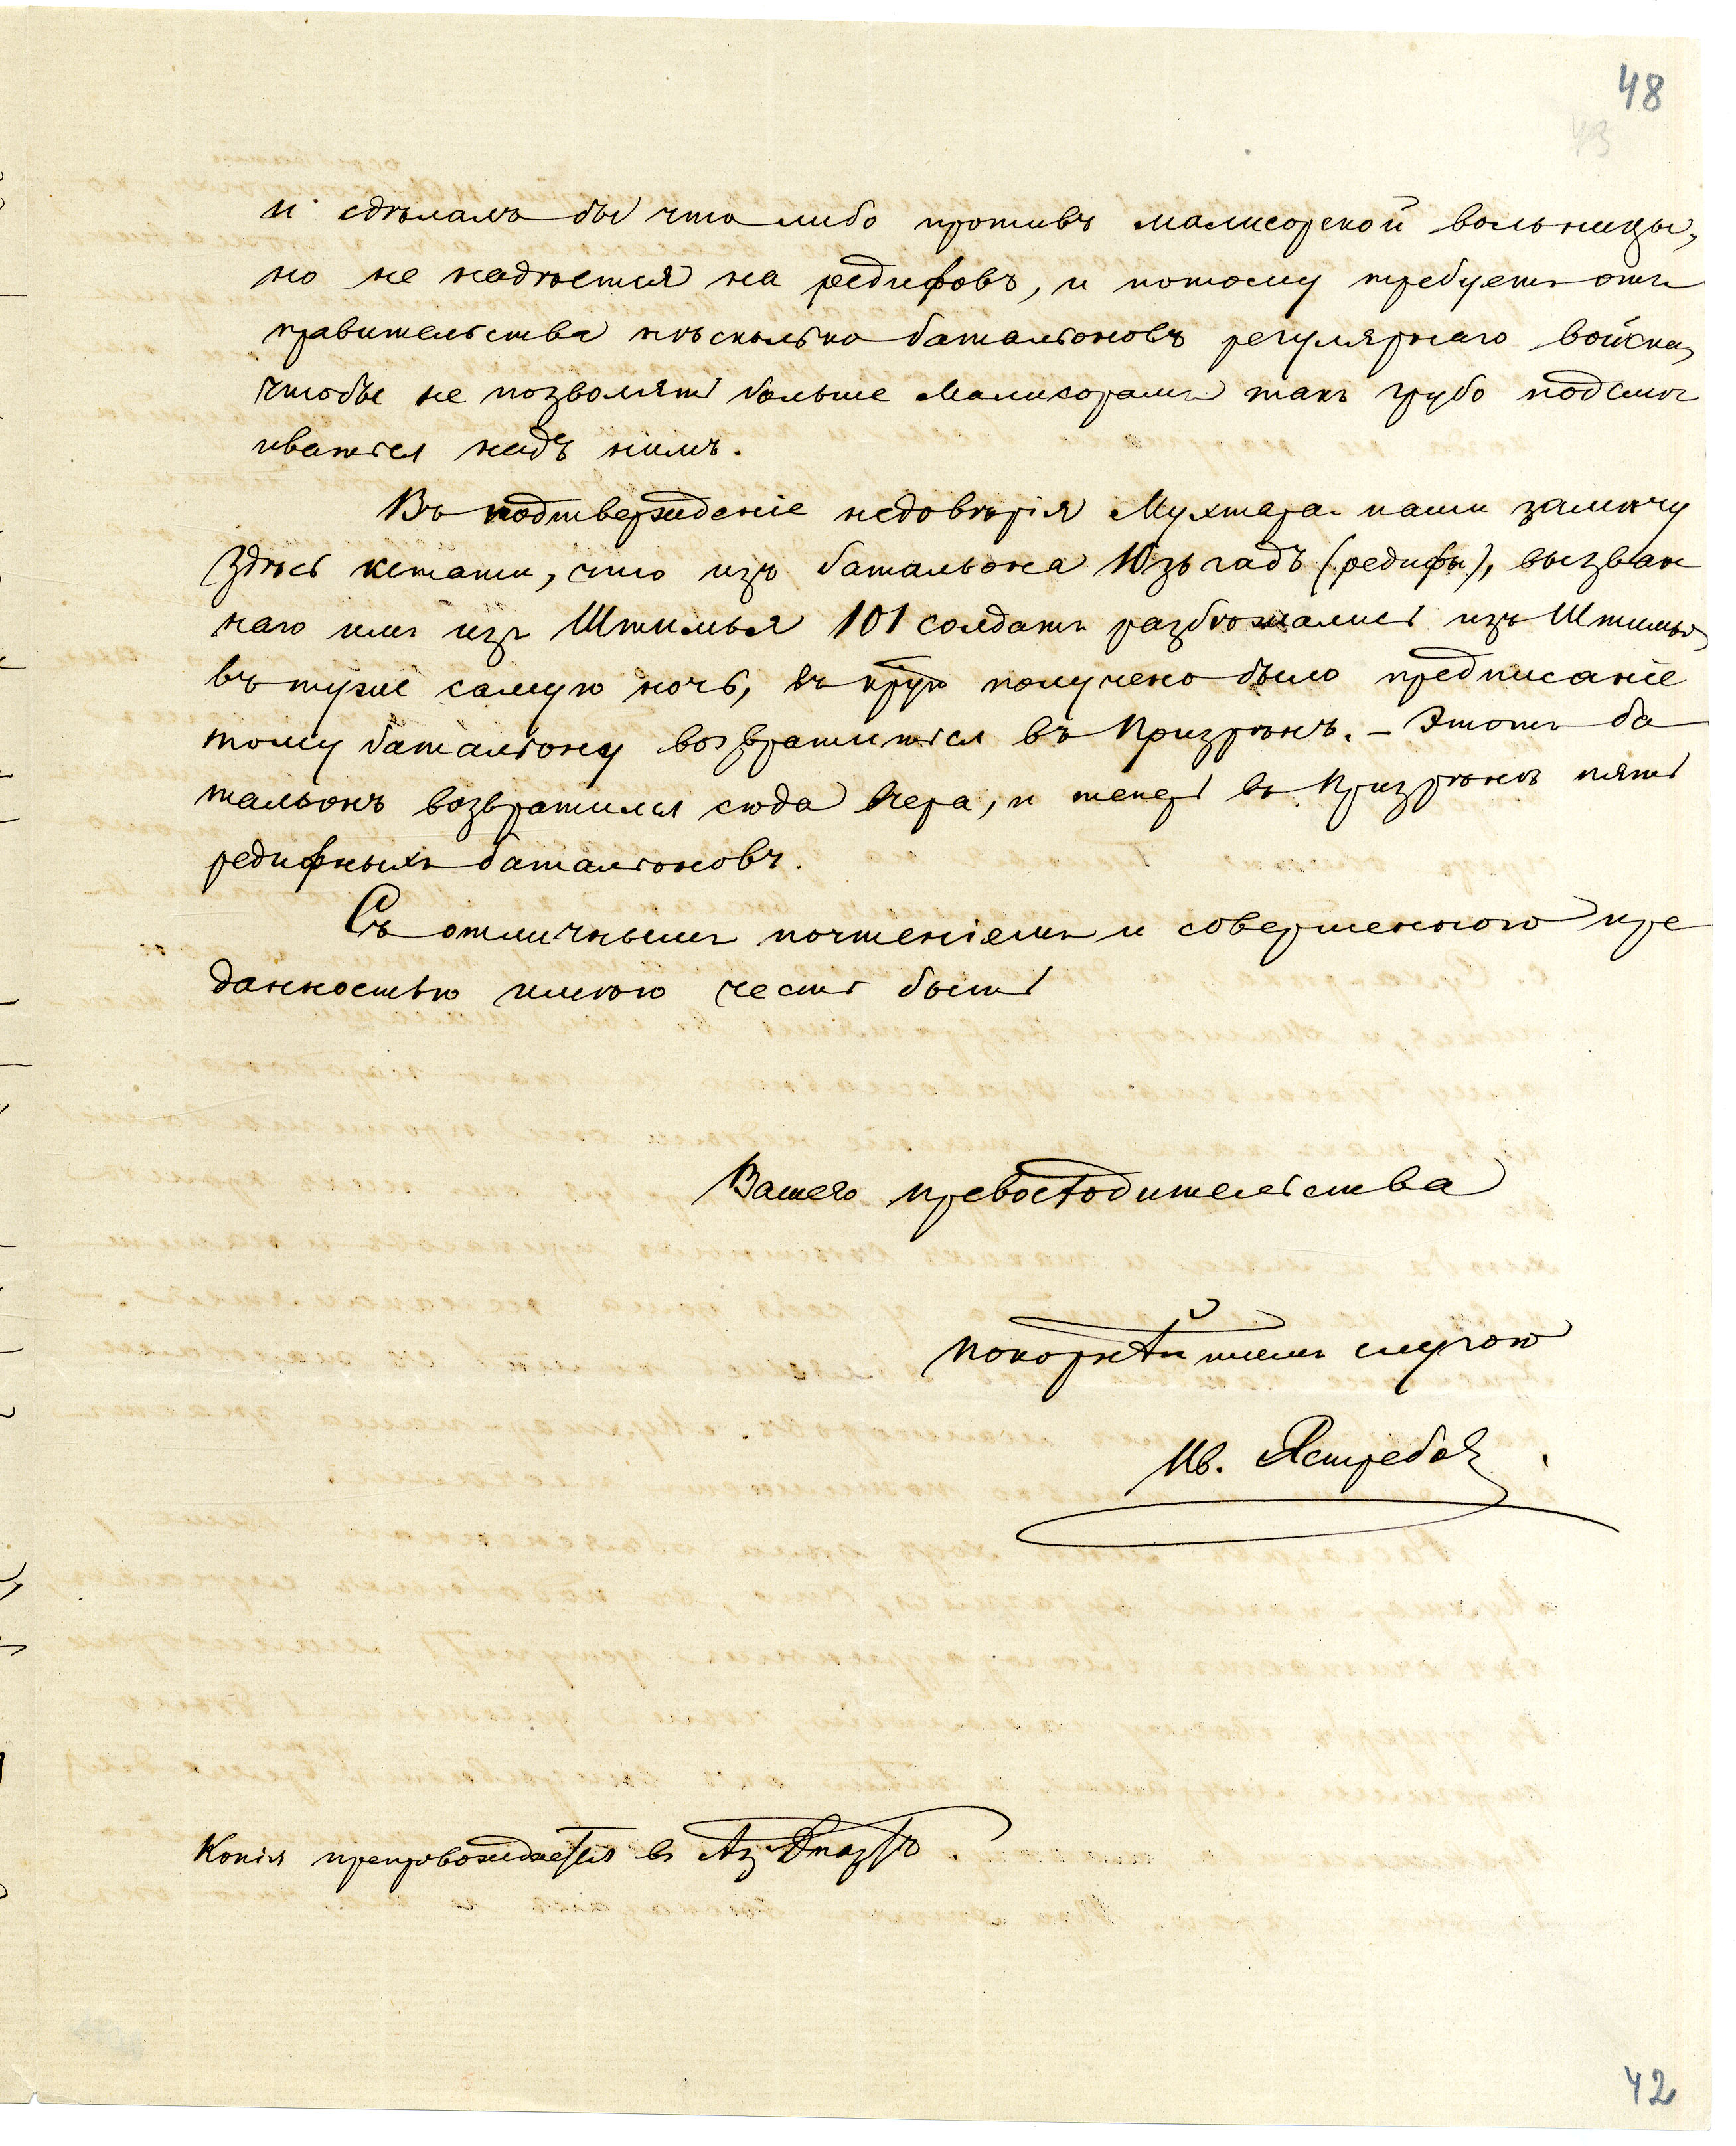 48
43
и сдѣлалъ бы что либо противъ малисорской вольницы,
но не надѣется на редифовъ, и потому требуетъ отъ
правительства нѣсколько батальоновъ регулярнаго войска,
чтобы не позволять больше Малисорамъ такъ грубо подсмѣ
иваться надъ нимъ.
Въ подтвержденіе недовѣрія Мухтара паши замѣчу
здѣсь кстати, что изъ батальона Юзъгадъ (редифы), вызван
наго имъ изъ Штимлья 101 солдатъ разбѣжались изъ Штимлья,
въ туже самую ночь, въ кртую получено было предписаніе
тому батальону возвратиться въ Призрѣнъ. – Этотъ ба
тальонъ возвратился сюда вчера, и теперь въ Призрѣнѣ пять
редифныхъ батальоновъ.
Съ отличнымъ почтеніемъ и совершенною пре
данностью имѣю честь быть
Вашего превосходительства
покорнѣйшимъ слугою
Ив. Ястребовъ
Копія препровождается въ Аз. Дпартъ.
42